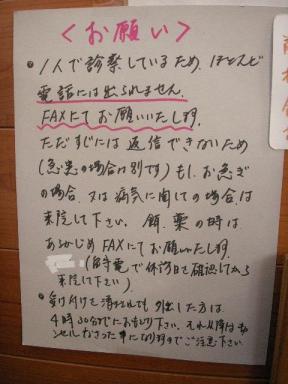 ＜お願い＞
●1人で診察しているため、ほとんど
電話には出られません。
FAXにてお願いいたします。
ただすぐには返信できないため
(急患の場合は別です)もし、お急ぎ
の場合、又は病気に関しての場合は
来院して下さい。餌、薬の時は
あらかじめFAXにてお願いいたします。
(留守電で休診日を確認してから
来院して下さい)
●受け付けを済まされても外出した方は
4時30分までにおもどり下さい。それ以降はキャ
ンセルなさった事になりますのでご注意下さい